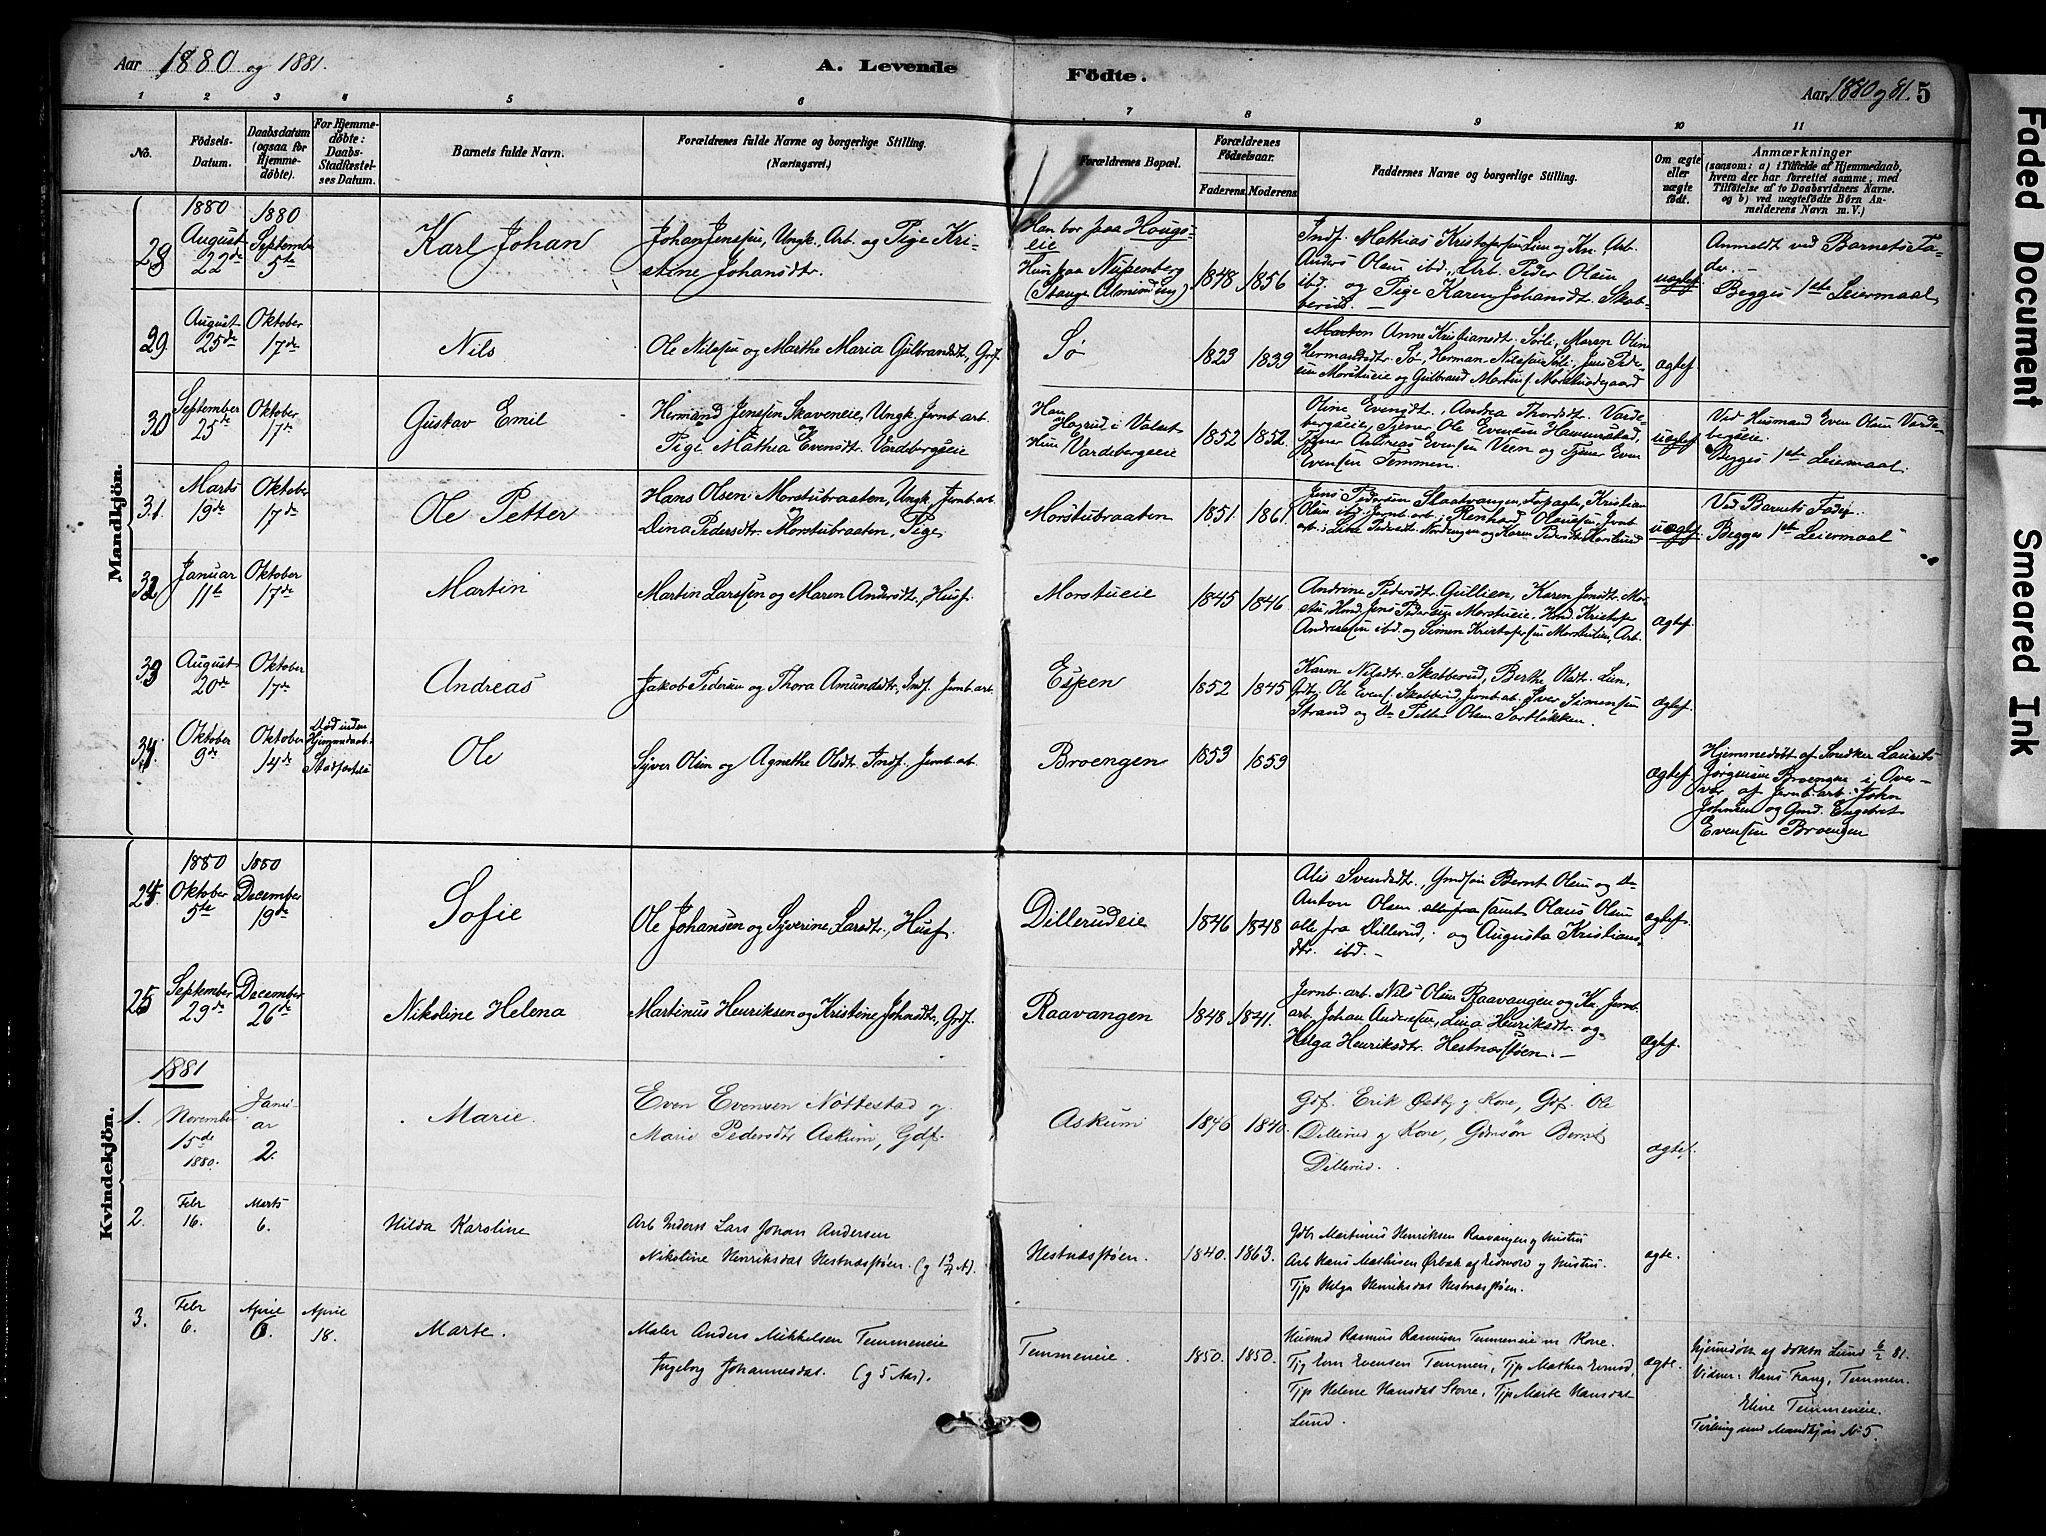 Aar 1880 og 1881.
A. Levende Födte.
Aar 1880 og 81. 5
1 2 3 4 5 6 7 8 9 10 11
No.
Födsels-Datum.
Daabsdatum (ogsaa for Hjemme-döbte).
For Hjemme-döbte: Daabs-Stadfæstel-ses Datum.
Barnets fulde Navn.
Forældrenes fulde Navne og borgerlige Stilling. (Næringsvei.)
Forældrenes Bopæl.
Forældrenes Födselsaar.
Faderens. Moderens.
Faddernes Navne og borgerlige Stilling.
Om ægte eller uægte födt.
Anmærkninger
(saasom: a) i Tilfælde af Hjemmedaab, hvem der har forrettet samme, med Tilföielse af to Daabsvidners Navne. og b) ved uægtefödte Börn Anmelderens Navn m. V.)
Mandkjön.
28
1880 August 22de
1880 September 5te
Karl Johan
Johan Jensen, Ungk., Arb. og Pige Kri-
stine Johansdtr.
Han bor paa Hougs-
eie
Hun paa Nupenberg
(Stange Almindng)
1848 1856
Indf. Mathias Kristofersen Lien og Kn. Arb.
Anders Olsen ibd., Arb. Peder Olsen
ibd. og Pige Karen Johansdt. Skab-
berud. –
uægtef.
Anmeldt ved Barnets Fa-
der. –
Begges 1ste Leiermaal.
29
August 25de
Oktober 17de
Nils
Ole Nilsen og Marthe Maria Gulbrandsdt., Grf.
Sø
1823 1839
Anne Kristiansdt. Sørli, Maren Olea
Hermansdtr. Sø, Herman Nilsen Sørli, Jens Pede-
sen Morstueie og Gulbrand Martins. Morstuødegaard
ægtef.
30
September 25de
Oktober 17de
Gustav Emil
Hermand Jensen Skaveneie, Ungk. Jernb. arb.
og
Pige Mathea Evensdt. Vardebergseie
Han
Hogrud i Valset
Hun Vardebergseie
1852 1852
Oline Evensdt., Andrea Thordsdt. Varde-
bergseie, Tjener Ole Evensen Hammerstad,
Tjener Andreas Evensen Veen og Tjener Even
Evensen Temmen.
uægtef.
Ved Husmand Even Olsen Varde-
bergseie.
Begges 1ste Leiermaal.
31
Marts 19de
Oktober 17de
Ole Petter
Hans Olsen Morstubraaten, Ungk. Jernb. arb.
og
Dina Pedersdtr. Morstubraaten, Pige
Morstubraaten
1851. 1861.
Jens Pedersen Slaatvangen, Forpagter, Kristian
Olsen ibd., Jernb. arb., Renhard Olausen Jernb.
arb., Lina Pedersdt. Nordengen og Karen Pedersdt. Morstueid
uægtef.
Ved Barnets Fader.
Begges 1ste Leiermaal
32
Januar 11te
Oktober 17de
Martin
Martin Larssen og Maren Andersdt., Husf.
Morstueie
1845 1846
Andrine Pedersdt. Gullien, Karen Jensdt. Mor-
stu, Hmd. Jens Pedersen Morstueie, Hmd. Kristofer
Andreassen ibd. og Simen Kristofersen Morstulien, Arb.
ægtef.
33
August 20de
Oktober 17de
Andreas
Jakob Pedersen og Thora Amundsdtr., Indf. Jernb. arb.
Espen
1852 1845
Karen Nilsdtr. Skabberud, Berthe Olsdt. Lien,
Grdbr. Ole Evens. Skabberud, Jernb. ab. Iver Simensen
Strand og Do Petter Olsen Sortløkken.
ægtef.
34
Oktober 9de
Oktober 14de
Død uden
Hjemmedaab.
Stadfæstelse
Ole
Syver Olsen og Agnethe Olsdt. Indf. Jernb. ab.
Broengen
1853 1859
ægtef.
Hjemmedøbt af Snedker Laurits
Jørgensen Broengen i Over-
vær af Jernb. arb. John
Johnsen og Gmd. Engebret
Evensen Broengen
Kvindekjön.
24.
1880 Oktober 5te
1880 December 19de
Sofie
Ole Johansen og Syverine Larsdtr., Husf.
Dillerudeie
1846 1848
Alis Svendsdtr., Grdsön Bernt Olsen og Do
Anton Olsen alle fra samt Olaus Olsen
alle fra Dillerud, og Augusta Kristians-
dtr. ibd. –
ægtef.
25
September 29de
December 26de
Nikoline Helena
Martinus Henriksen og Kristine Johnsdtr., Grdf.
Raavangen
1848. 1841.
Jernb. arb. Nils Olsen Raavangen og Kn., Jernb.
arb. Johan Anderssen, Lina Henriksdtr. og
Helga Henriksdtr. Hestnæsstøen. –
ægtef.
1881
1.
November 15de 1880.
Januar 2.
Marie
Even Evensen Nöttestad og
Marie Pedersdtr Askum, Gdf.
Askum
1846 1840.
Gdf. Erik Østby og Kone, Gdf. Ole
Dillerud og Kone, Gdmsøn Bernt
Dillerud.
ægtef.
2.
Febr 16.
Marts 6.
Hilda Karoline
Arb Inderst Lars Johan Andersen
Nikoline Henriksdat Hestnæsstøen. (g 1 3/4 A).
Hestnæsstøen.
1840. 1863.
Gdbr Martinus Henriksen Raavangen og Hustru
Arb Hans Mathisen Ørbæk af Eidsvold og Hustru.
Tjp Helga Henriksdat Hestnæsstøen.
ægte.
3.
Febr 6.
April 6.
April 18.
Marte.
Maler Anders Mikkelsen Temmeneie
Ingeborg Johannesdat. (g 5 Aar).
Temmeneie.
1850. 1850.
Husmd Rasmus Rasmusen Temmeneie m Kone.
Tjg Even Evensen Temmen, Tjp Mathea Evensd.
Tjp Helene Hansdat Storre, Tjp Marte Hansdat
Lund.
ægte.
Hjemdøbt af doktor Lund 6/2 81.
Vidner: Hans Frang, Temmen.
Eline Temmeneie.
Tvilling med Mandkjøn No 5.
Faded Document
Smeared Ink